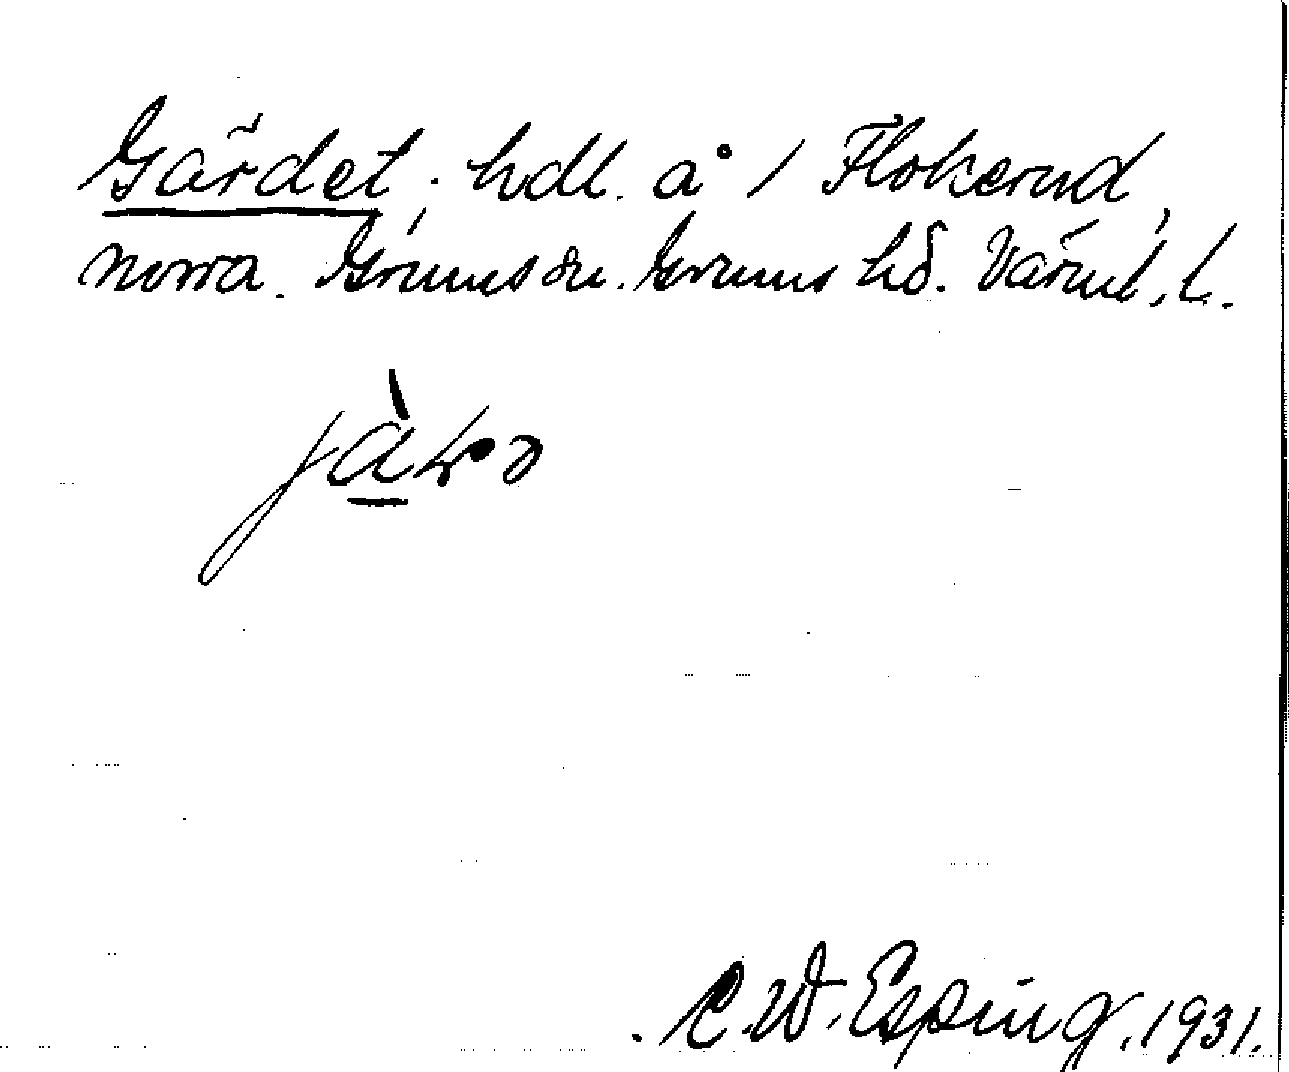 Gärdet, hdl. å 1 Flokerud,
norra. Grums sn. Grums hd. Värml. l.
C. W. Esping. 1931.